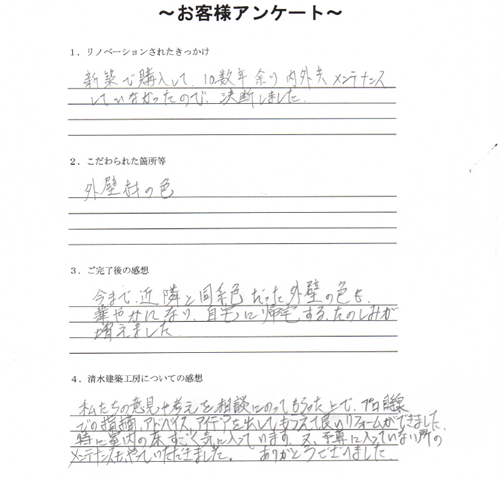 ～お客様アンケート～
1．リノベーションされたきっかけ
新築で購入して、10数年余り内外共メンテナンス
していなかったので、決断しました。
2．こだわられた箇所等
外壁材の色
3．ご完了後の感想
今まで、近隣と同系色だった外壁の色も、
華やかになり、自宅に帰宅する、たのしみが
増えました
4．清水建築工房についての感想
私たちの意見や考えを相談にのってもらった上で、プロ目線
での指摘、アドバイス、アイデアを出してもらえて良いリフォームができました。
特に室内の床、すごく気に入っています。又、予算に入っていない所の
メンテナンスもやっていただきました。 ありがとうございました。